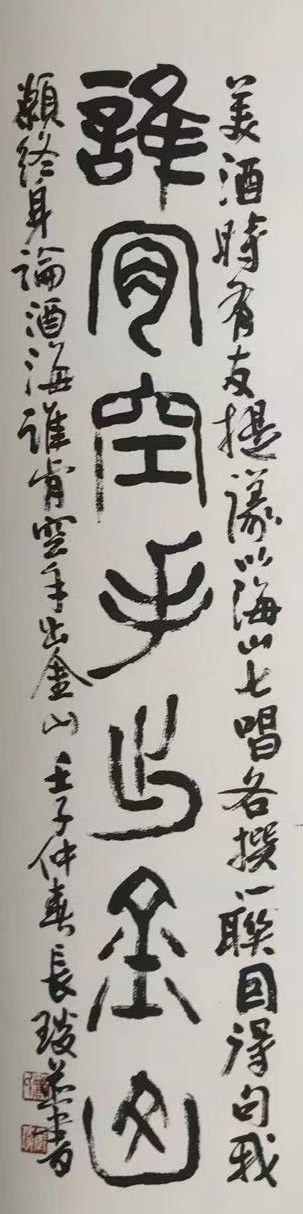 美酒時有友提議以海山七唱各撰一聯因得句我
誰肯空手出金山
願終身論酒海誰肯空手出金山 壬子仲春長